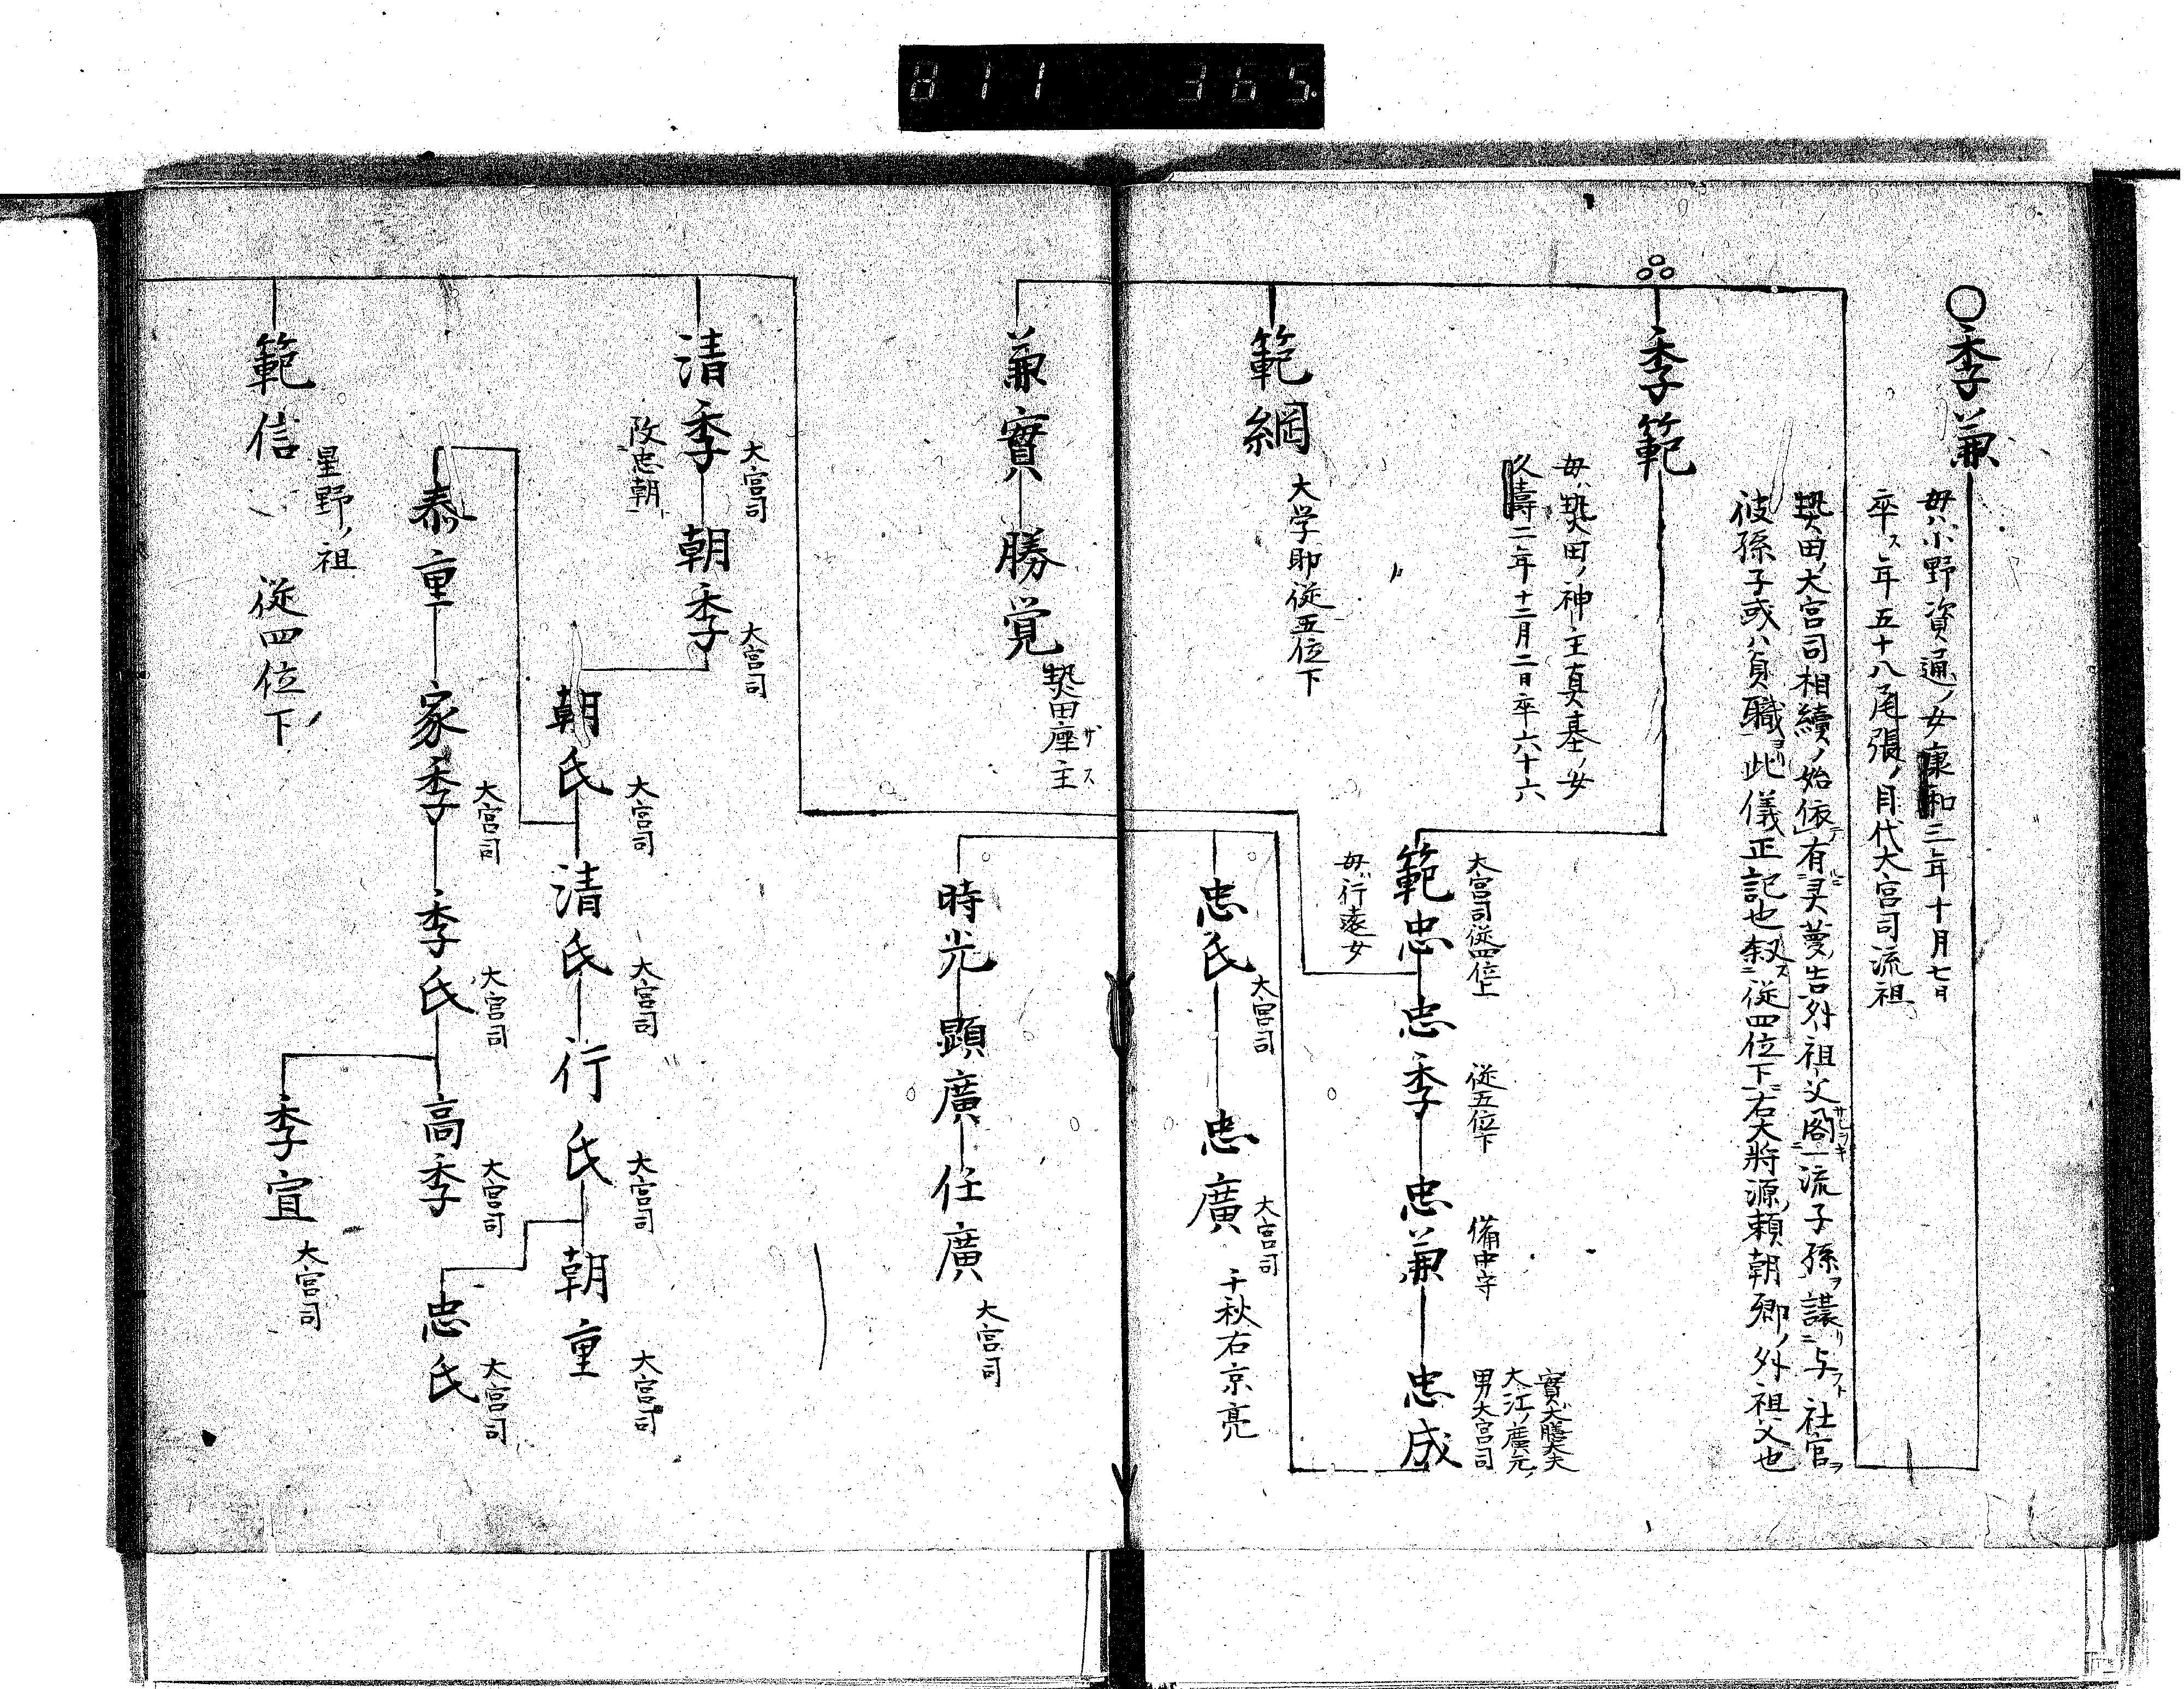 811 365
○季兼
母ハ小野資通ノ女康和三年十月七日
卒ス年五十八尾張ノ目代大宮司流祖
熱田ノ大宮司相續ノ始依テ有ルニ灵夢ノ告外祖父閣一流子孫ヲ讓リ与フト社官ヲ
彼孫子或ハ負職此儀正記也叙ス従四位下右大將源頼朝卿ノ外祖父也
季範
母ハ熱田ノ神主真基ノ女
久壽二年十二月二日卒六十六
大宮司従四位上
範忠
母ハ行遠女
忠季
従五位下
忠兼
備中守
忠成
實ハ大膳大夫
大江ノ廣元ノ
男大宮司
範綱
大学助従五位下
忠氏
大宮司
忠廣
大宮司
千秋右京亮
兼實
勝覚
熱田座主
ザス
時光
顕廣
任廣
大宮司
清季
大宮司
改忠朝
朝季
大宮司
朝氏
大宮司
清氏
大宮司
行氏
大宮司
朝重
大宮司
泰重
家季
大宮司
季氏
大宮司
高季
大宮司
忠氏
大宮司
季宜
大宮司
範信
星野ノ祖
従四位下